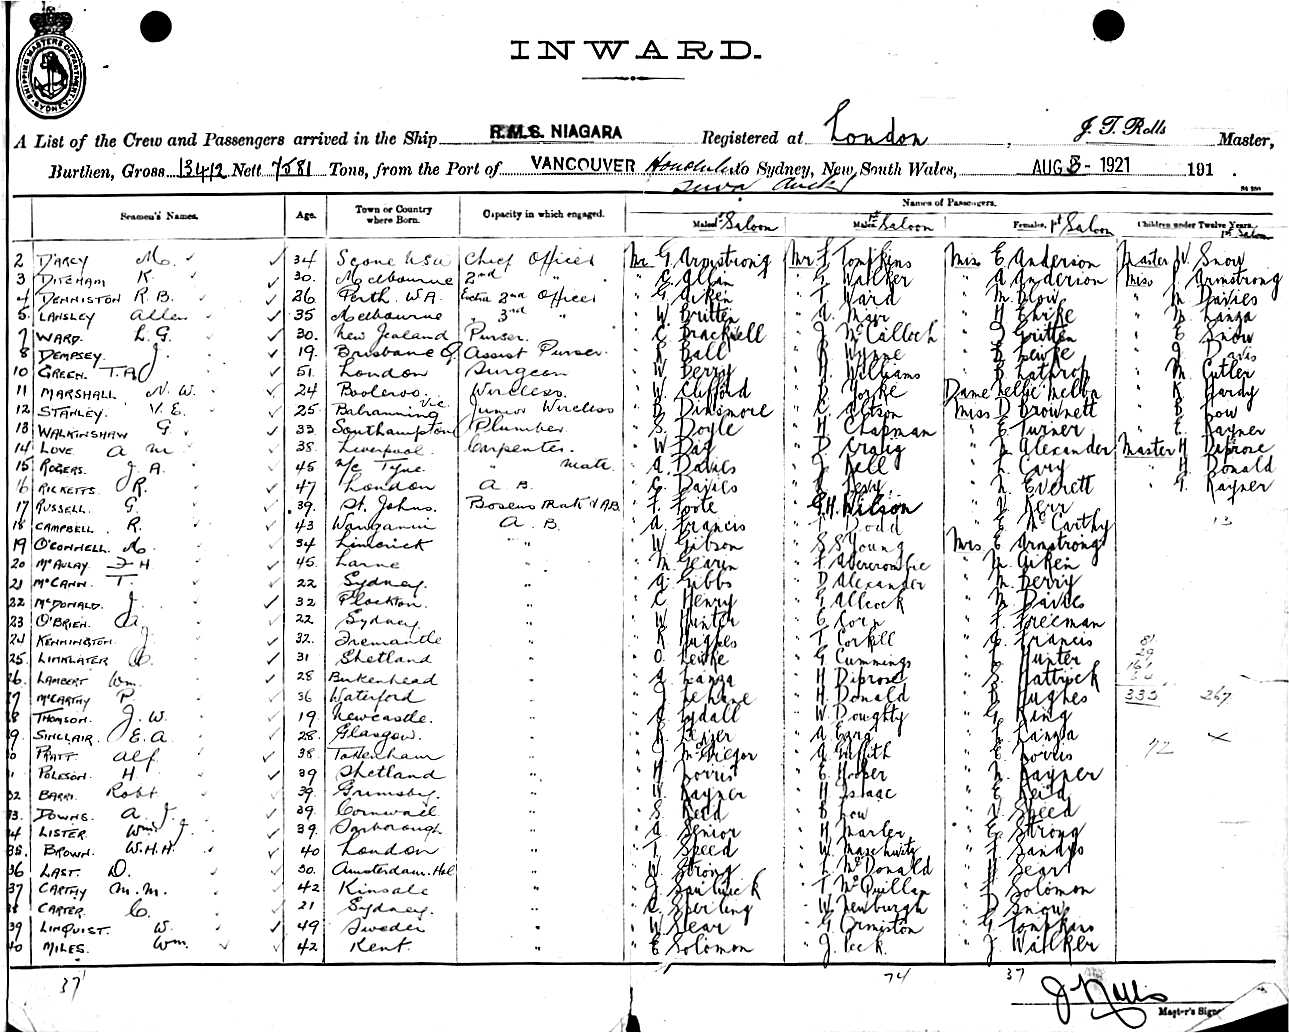 SHIPPING MASTERS DEPARTMENT SYDNEY
INWARD.
A List of the Crew and Passengers arrived in the Ship R.M.S. NIAGARA Registered at London, J. T. Rolls Master,
Burthen, Gross 13412 Nett 7581 Tons, from the Port of VANCOUVER Honolulu to Sydney, New South Wales, AUG 3 - 1921 191 .
Suva Auck
Names of Passengers.
Seamen's Names. Age. Town or Country where Born. Capacity in which engaged. Males 1st Saloon Males 1st Saloon Females, 1st Saloon Children under Twelve Years. 1st Saloon
2 D'ARCY M. 34 Scone NSW Chief Officer Mr G Armstrong Mr F Tompkins Miss E Anderson Master W. Snow
3 DITCHAM K 30. Melbourne 2nd " " C Allan " G Walker " A Anderson Miss J Armstrong
4 DENNISTON R. B. 26 Perth. W.A. Extra 2nd Officer " G Aiken " T Ward " M Blow " M Davies
5. LANSLEY Allen 35 Melbourne 3rd " " W Britten " A Marr " H Ehrke " M Langa
7 WARD. L. G. 30. New Zealand Purser. " C Bracknell " J McCalloch " J Gritten " E Snow
8 DEMPSEY. J. 19. Brisbane Q Assist Purser. " R Ball " R Wynne " L Lewke " J Davis
10 GREEN. T. A. 51. London Surgeon " W Berry " H. Williams " B Lathrop " M Cutler
11 MARSHALL N. W. 24 Booleroo Wireless. " W Clifford " B Yorke Dame Nellie Melba " K Hardy
12 STANLEY. V. E. 25. Vic Junior Wireless " B Dinsmore " C Abtson Miss D Brownett " B Low
13 WALKINSHAW G 33 Southampton Plumber " S Doyle " H Chapman " E Turner " E Rayner
14 LOVE A M 38. Liverpool. Carpenter. " W Day " D Craig " L Alexander Master H Diprose
15 ROGERS. J A. 45 N/c Tyne. " Mate. " A. Davies " J Fell " L Cary " H Donald
16 RICKETTS. R. 47 London A B. " C Davies " " L. Everett " G. Rayner
17 RUSSELL. G. 39. St. Johns. Bosens Mate & AB. " F Foote " G.H. Wilson " J Kerr
18 CAMPBELL R. 43 Wanganui A. B. " A. Francis " T Dodd " E McCarthy 13
19 O'CONNELL. M. 34 Limerick " " W Gibson " S S Young Mrs E Armstrong
20 McAULAY F H 45. Larne " " M Gearin " F Abercrombie " M Aiken
21 McCANN. T. 22 Sydney. " " A Gibbs " D Alexander " M. Berry
22 McDONALD. J. 32 Plockton. " " C Henry " G Allcock " M Davies
23 O'BRIEN. A. 22 Sydney. " " W Hunter " C Corn " F Freeman
24 KENNINGTON. J. 32. Fremantle " " R Hughes " T Corkill " C Francis 81
25. LINKLATER C. 31 Shetland " " O. Lewke " G Cummings " L Hunter 29
26. LAMBERT Wm. 28 Birkenhead " " A Langa " H Diprose " S. Hattrick
27 McCARTHY P. 36 Waterford " " J Lehane " H Donald " B Hughes 333 267
28 THOMSON. J. W. 19 Newcastle. " " C Lydall " W Doughty " G King
29 SINCLAIR. E. A. 28. Glasgow. " " R Leiser " A Ezra " L Langa
30 PRATT. Alf 38 Tottenham " " J McGregor " A Griffith " E Lorris 72
31 POLESON. H 39 Shetland " " H Lorris " E Hooper " L. Rayner
32 BARRY. Robt 39. Grimsby. " " W. Rayner " H Isaac " E Reid
33. DOWNS. A. J. 39. Cornwall " " S Reid " B Low " V Speed
34 LISTER Wm. J. 39. Scarborough " " A Senior " H Marler " E. Strong
35. BROWN. W. H. H. 40 London " " T Speed " W Maschwitz " F Sandys
36 LAST. D. 30. Amsterdam. Hol " " W. Strong " L McDonald " H Sear
37 CARTHY M. M. 42 Kinsale " " J. Spielvick " T McQuillan " F Solomon
38 CARTER. C. 21 Sydney. " " A Sperling " W Newburgh " D Snow
39 LINQUIST. W. 49 Sweden " " W Sear " G Ormiston " G Tompkins
40 MILES. Wm 42 Kent. " " E Solomon " J. Peck. " J. Walker
37 74 37
J T Rolls
Master's Signa